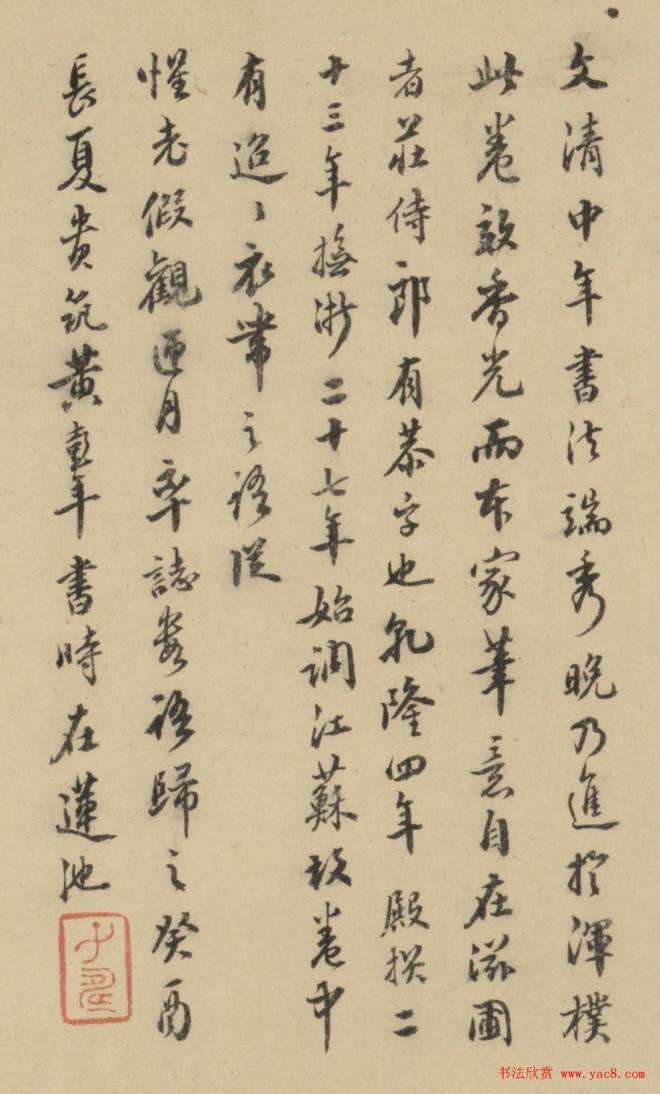 文清中年書法端秀晚乃進於渾樸
此卷效香光而本家筆意自在滋圃
者莊侍郎有恭字也乾隆四年 殿撰二
十三年撫浙二十七年始調江蘇故卷中
有迢〻衣帶之語從
惺老假觀匝月率誌數語歸之癸酉
長夏貴筑黃彭年書時在蓮池
子壽
书法欣赏 www.yac8.com